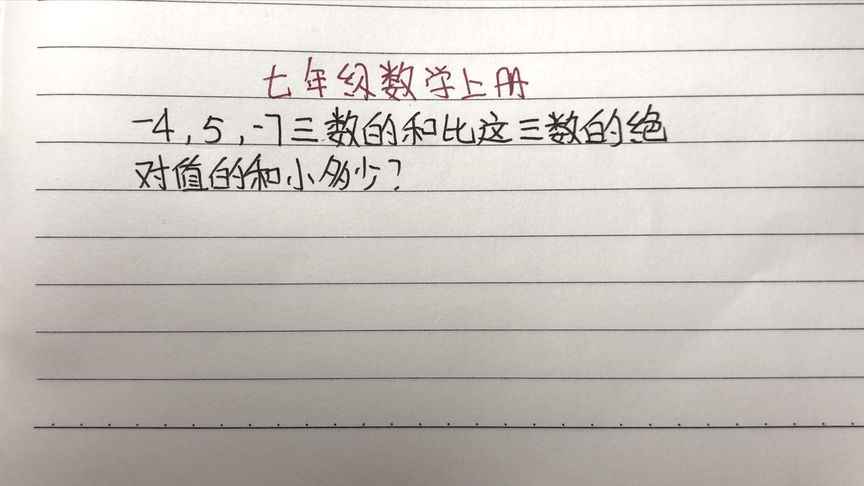 七年级数学上册
-4,5,-7三数的和比这三数的绝
对值的和小多少?